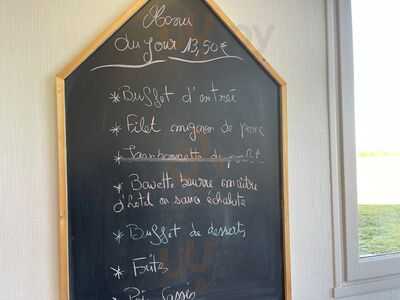 Menu
du jour 13,50€
* Buffet d'entrée
* Filet mignon de porc
* Jambonnette de poulet
* Bavette beurre maitre
d'hotel ou sauce échalote
* Buffet de desserts
* Frites